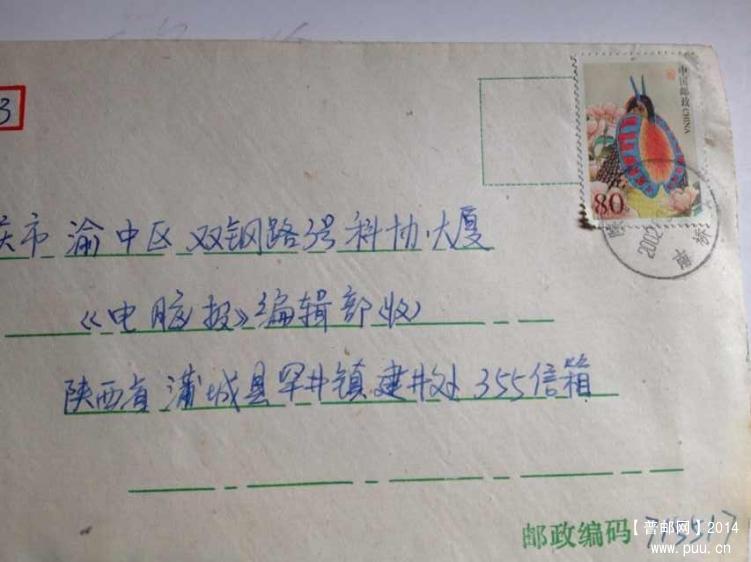 3
中国邮政 CHINA
80
2002
庆市 渝中区 双钢路3号 科协大厦
《电脑报》编辑部(收)
陕西省 蒲城县 罕井镇 建井处 355信箱
邮政编码 715517
【普邮网】2014
www.puu.cn